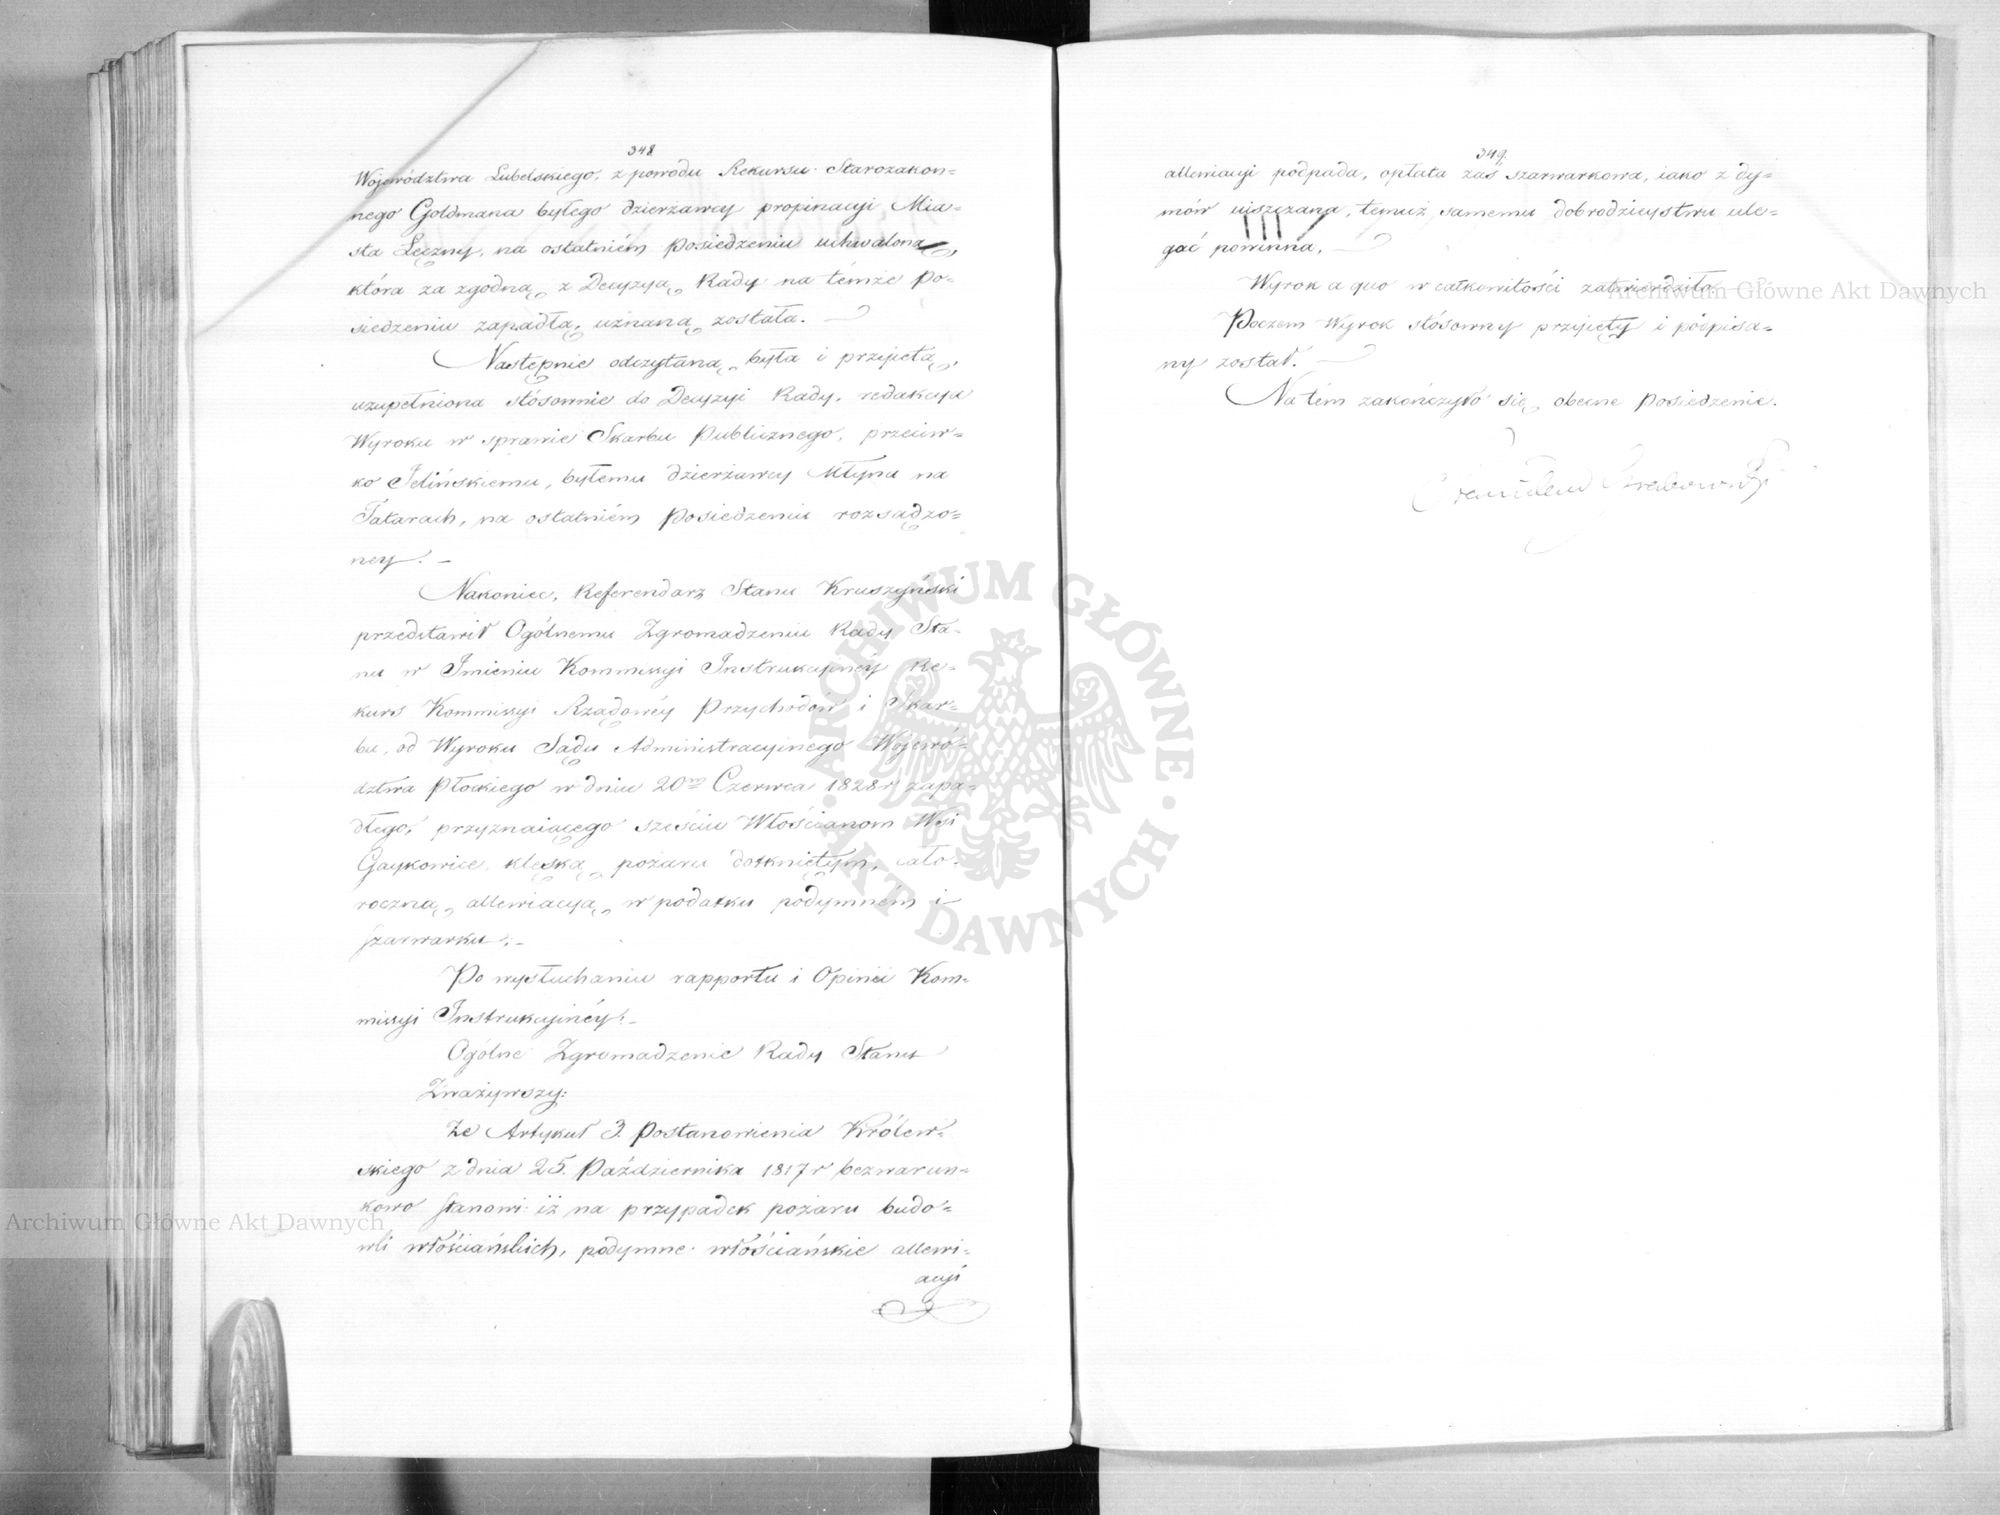 348
Województwa Lubelskiego, z powodu Rekursu Starozakon=
nego Goldmana byłego dzierżawcy propinacyi Mia=
sta Łęczny, na ostatniém posiedzeniu uchwalona,
która za zgodną z Decyzyą Rady na témże po=
siedzeniu zapadłą, uznaną została.
Następnie odczytaną była i przyiętą,
uzupełniona stósownie do Decyzyi Rady, redakcya
Wyroku w sprawie Skarbu Publicznego, przeciw=
ko Jelińskiemu, byłemu dzierżawcy Młyna na
Tatarach, na ostatniém Posiedzeniu rozsądzo=
ney. –
Nakoniec, Referendarz Stanu Kruszyński
przedstawił Ogólnemu Zgromadzeniu Rady Sta=
nu w Imieniu Kommissyi Instrukcyinéy Re=
kurs Kommissyi Rządowéy Przychodów i Skar=
bu, od Wyroku Sądu Administracyinego Wojewó=
dztwa Płockiego w dniu 20m Czerwca 1828 r zapa=
dłego, przyznaiącego sześciu Włościanom Wsi
Gaykowice, klęską pożaru dotkniętym, cało=
roczną allewiacyą, w podatku podymném i
szarwarku. –
Po wysłuchaniu rapportu i Opinii Kom=
missyi Instrukcyinéy. –
Ogólne Zgromadzenie Rady Stanu
Zważywszy:
Że Artykuł 3. Postanowienia Królew=
skiego z dnia 25. Października 1817 r bezwarun=
kowo stanowi iż na przypadek pożaru budo=
wli włościańskich, podymne włościańskie allewi=
acyi
349.
allewiacyi podpada, opłata zaś szarwarkowa, iako z dy=
mów uiszczana, temuż samemu dobrodzieystwu ule=
gać powinna,
Wyrok a quo w całkowitości zatwierdziło.
Poczem Wyrok stósowny przyięty i podpisa=
ny został.
Na tém zakończyło się obecne posiedzenie.
Stanisław Grabowski
Archiwum Główne Akt Dawnych
Archiwum Główne Akt Dawnych
ARCHIWUM GŁÓWNE AKT DAWNYCH